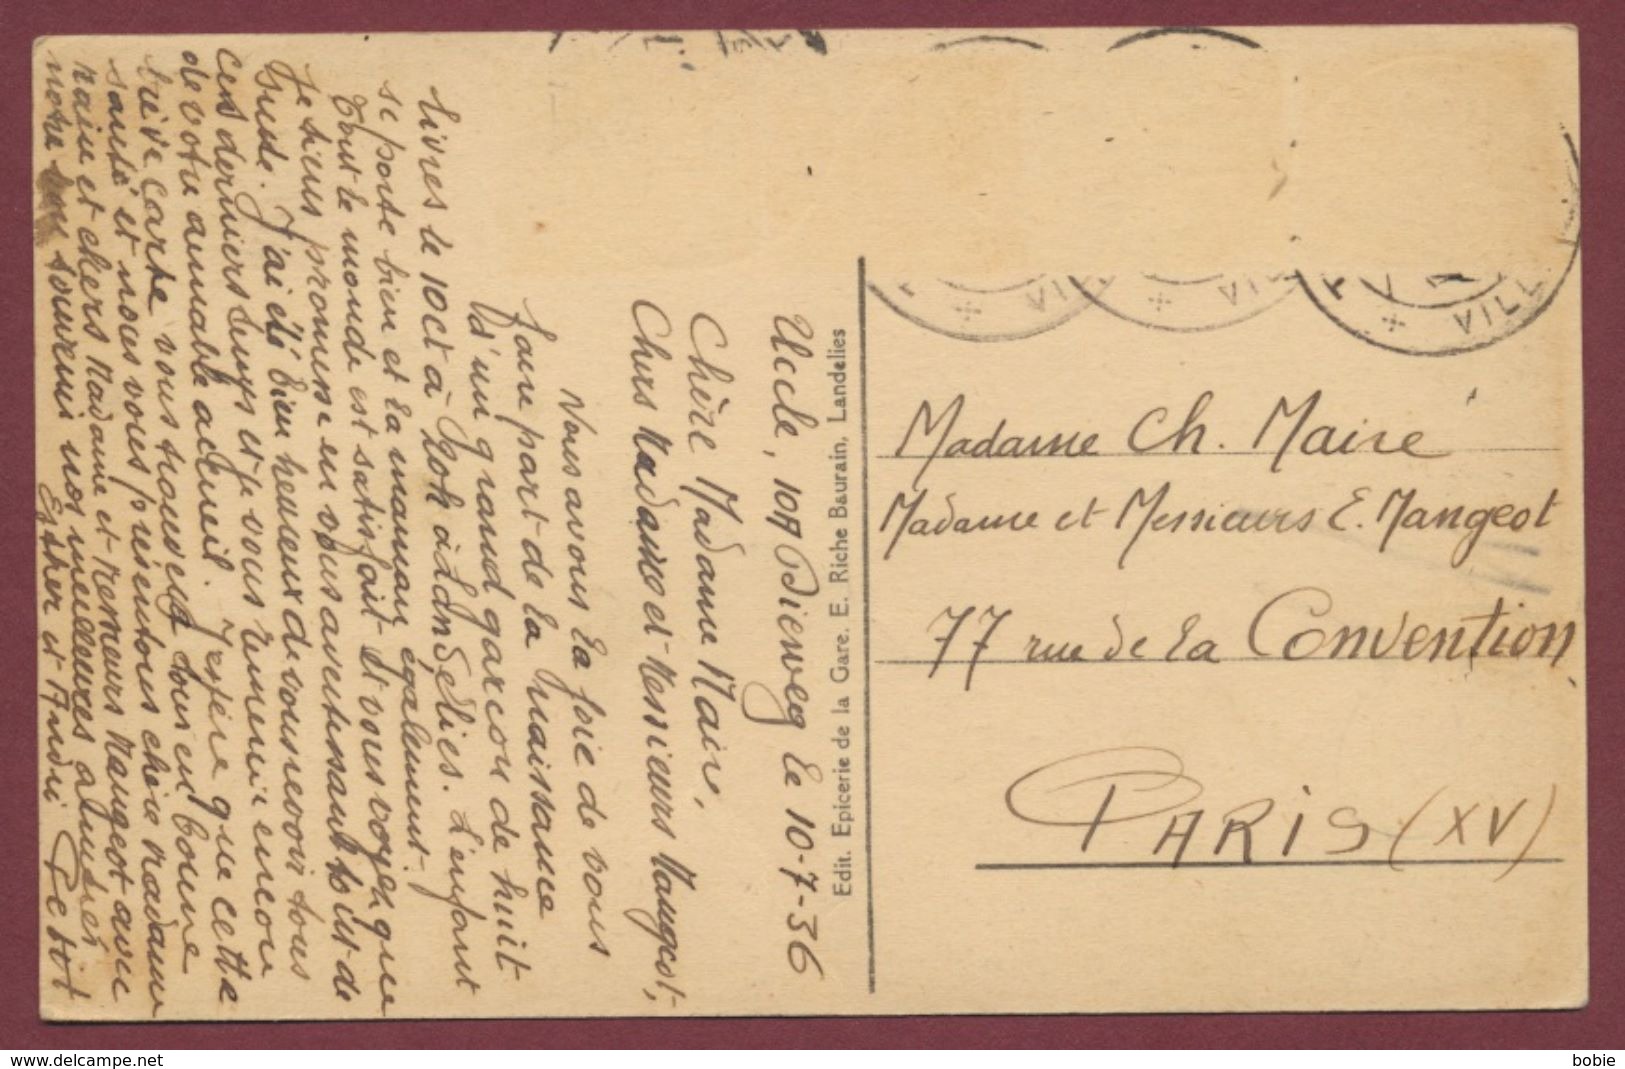 Uccle, 107 Dieweg le 10-7-36
Chère Madame Maire,
Chers Madame et Messieurs Mangeot,
Nous avons la joie de vous
faire part de la naissance
d'un grand garçon de huit
livres le 10 ct à 20h à Landelies. L'enfant
se porte bien et la maman également.
Tout le monde est satisfait. Et vous voyez que
je tiens promesse en vous avertissant tout de
suite. J'ai été bien heureux de vous revoir tous
ces derniers temps et je vous remercie encore
de votre aimable accueil. J'espère que cette
brève carte vous trouvera tous en bonne
santé et nous vous présentons chère Madame
Maire et chers Madame et Messieurs Mangeot avec
notre bon souvenir nos meilleures amitiés
Esther et André Petot
Edit. Epicerie de la Gare. E. Riche Baurain, Landelies
VILL
Madame Ch. Maire
Madame et Messieurs E. Mangeot
77 rue de la Convention
PARIS (XV)
www.delcampe.net
bobie